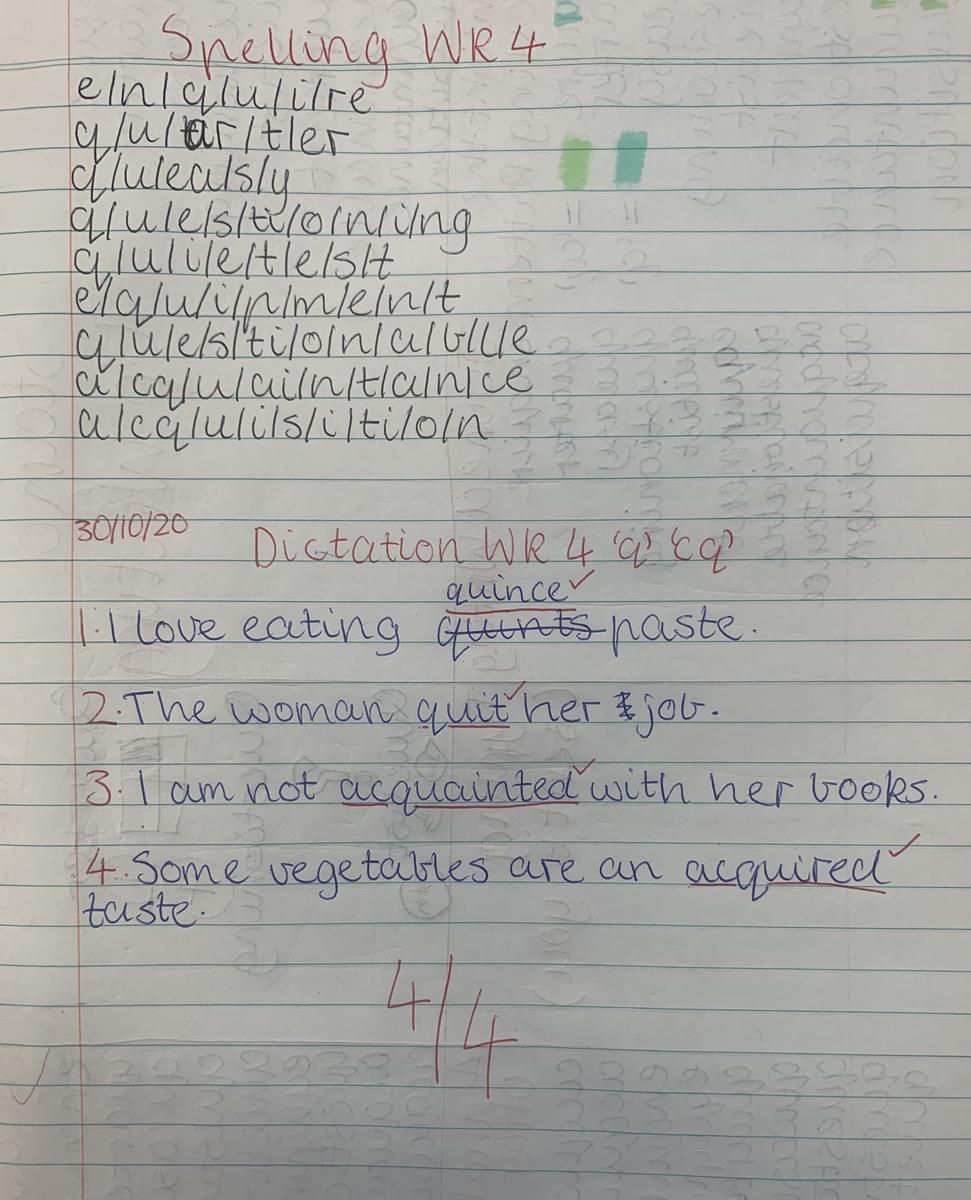 Spelling WK 4
e/n/q/u/i/re
q/u/ar/t/er
q/u/ea/s/y
q/u/e/s/ti/o/n/i/ng
q/u/i/e/t/e/s/t
e/q/u/i/p/m/e/n/t
q/u/e/s/ti/o/n/a/b/l/e
a/cq/u/ai/n/t/a/n/ce
a/cq/u/i/s/i/ti/o/n
30/10/20
Dictation WK 4 'q' 'cq'
quince
1. I love eating quints paste.
2. The woman quit her job.
3. I am not acquainted with her books.
4. Some vegetables are an acquired
taste.
4/4